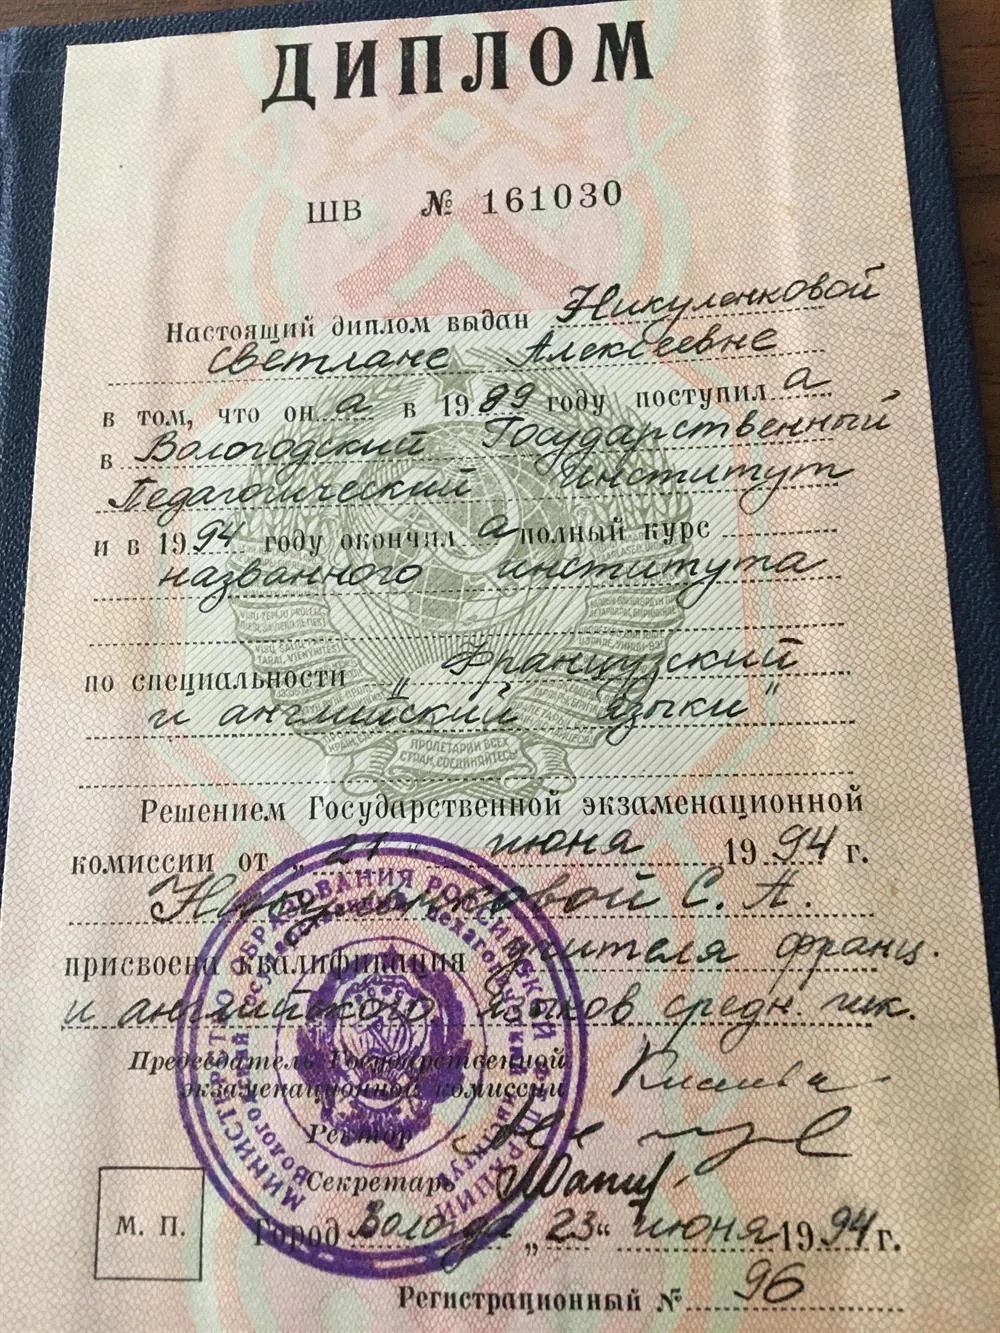 ДИПЛОМ
ШВ № 161030
Настоящий диплом выдан Никуленковой
Светлане Алексеевне
в том, что он а в 1989 году поступил а
в Вологодский Государственный
Педагогический институт
и в 1994 году окончил а полный курс
названного института
по специальности „Французский
и английский языки"
ПРОЛЕТАРИИ ВСЕХ
СТРАН, СОЕДИНЯЙТЕСЬ!
Решением Государственной экзаменационной
комиссии от „21“ июня 1994 г.
Никуленковой С. А.
присвоена квалификация учителя франц.
и английского языков средн. шк.
Председатель Государственной
экзаменационной комиссии
Ректор
Секретарь
М. П.
Город Вологда „23“ июня 1994 г.
Регистрационный № 96
МИНИСТЕРСТВО ОБРАЗОВАНИЯ РОССИЙСКОЙ ФЕДЕРАЦИИ
Вологодский государственный педагогический институт